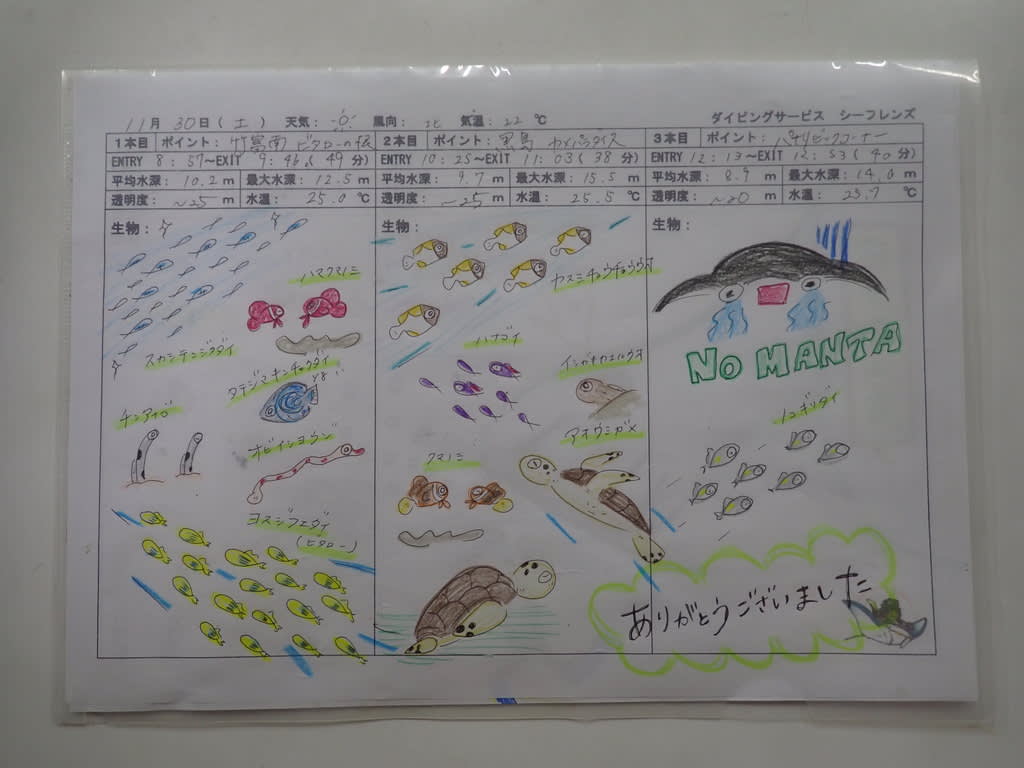 11月 30日(土) 天気: 風向: 北 気温: 22 ℃ ダイビングサービス シーフレンズ
1本目 ポイント: 竹富南 ビタローの根 2本目 ポイント: 黒島 カメパラダイス 3本目 ポイント: パナリビックコーナー
ENTRY 8:57~EXIT 9:46(49分) ENTRY 10:25~EXIT 11:03(38分) ENTRY 12:13~EXIT 12:53(40分)
平均水深: 10.2 m 最大水深: 12.5 m 平均水深: 9.7 m 最大水深: 15.5 m 平均水深: 8.9 m 最大水深: 14.0 m
透明度: ~25 m 水温: 25.0 ℃ 透明度: ~25 m 水温: 25.5 ℃ 透明度: ~20 m 水温: 23.7 ℃
生物:
ハマクマノミ
スカシテンジクダイ
タテジマキンチャクダイ
yg
チンアナゴ
オビイショウジ
ヨスジフエダイ
(ビタロー)
生物:
ヤスミチョウチョウウオ
ハナゴイ
インドカエルウオ
アオウミガメ
クマノミ
生物:
NO MANTA
ノコギリダイ
ありがとうございました